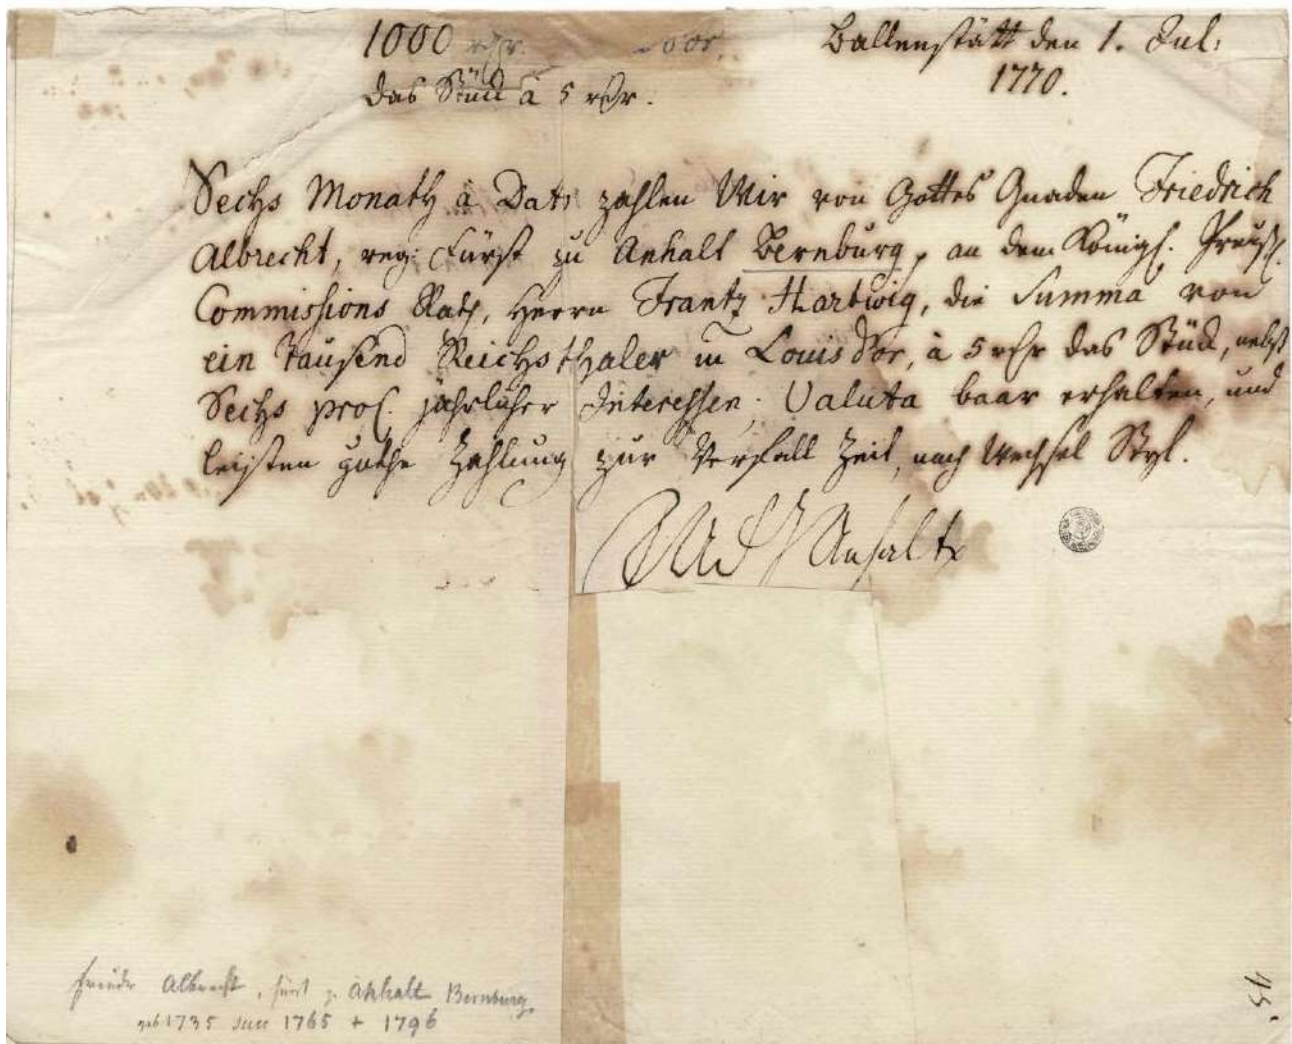 1000 rthr.
Ballenstätt den 1. Jul:
1770.
das Stück à 5 rthr.
Sechs Monath à Dato zahlen Wir von Gottes Gnaden Friedrich
Albrecht, reg: Fürst zu Anhalt Bernburg, an dem Königl. Preuß.
Commissions Rath, Herrn Frantz Hartwig, die Summa von
ein tausend Reichsthaler in Louis d'or, à 5 rthr das Stück, nebst
Sechs proC. jährlicher Interessen. Valuta baar erhalten, und
leisten guthe Zahlung zur Verfall Zeit, nach Wechsel Styl.
Anhalt
Friedr Albrecht, Fürst z. Anhalt Bernburg.
geb 1735 succ 1765 + 1796
15.